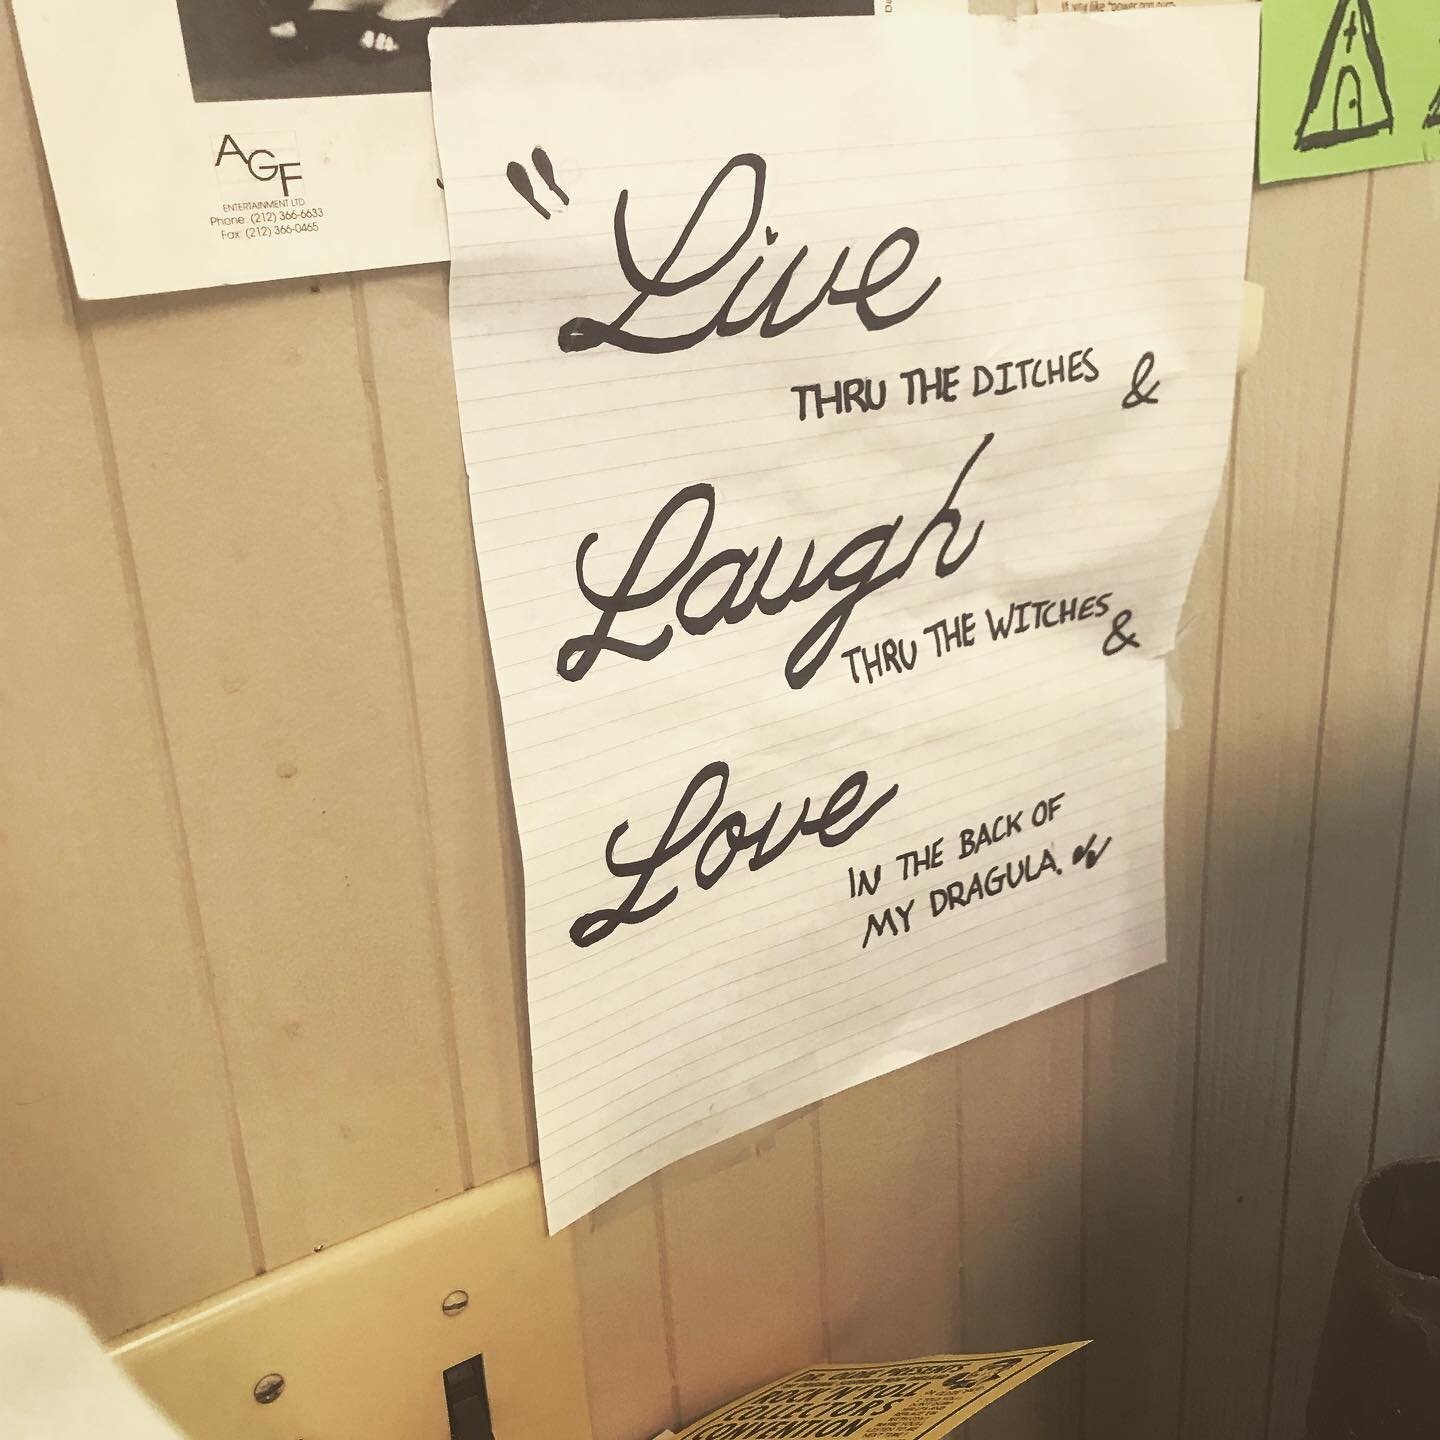 If you like "power pop
AGF
ENTERTAINMENT LTD.
Phone: (212) 366-6633
Fax: (212) 366-0465
"Live
THRU THE DITCHES &
Laugh
THRU THE WITCHES &
Love
IN THE BACK OF
MY DRAGULA."
PRESENTS
ROCK 'N' ROLL
COLLECTORS
CONVENTION